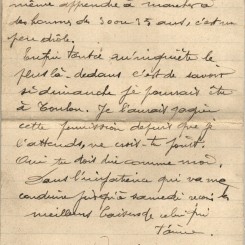 même apprendre à monter à
des hommes de 30 ou 35 ans, c'est un
peu drôle.
Enfin tant qu'inquiète le
plus là-dedans c'est de savoir
si dimanche je pourrais être
à Toulon. Je l'aurais gagnée
cette permission depuis que je
l'attends, ne crois-tu point.
Oui tu dois dire comme moi.
Dans l'impatience qui va me
conduire jusqu'à samedi reçois les
meilleurs baisers de celui qui
t'aime.